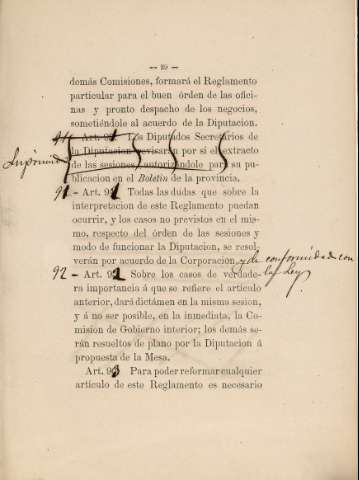 — 29 —
demás Comisiones, formará el Reglamento
particular para el buen órden de las ofici-
nas y pronto despacho de los negocios,
sometiéndole al acuerdo de la Diputacion.
Art. 9 Los Diputados Secretarios de
la Diputacion revisarán por sí el extracto
de las sesiones autorizándole para su pu-
blicacion en el Boletin de la provincia.
91 - Art. 9 Todas las dudas que sobre la
interpretacion de este Reglamento puedan
ocurrir, y los casos no previstos en el mis-
mo, respecto del órden de las sesiones y
modo de funcionar la Diputacion, se resol-
verán por acuerdo de la Corporacion, y de conformidad con
la Ley
92 - Art. 9 Sobre los casos de verdade-
ra importancia á que se refiere el artículo
anterior, dará dictámen en la misma sesion,
y á no ser posible, en la inmediata, la Co-
mision de Gobierno interior; los demás se-
rán resueltos de plano por la Diputacion á
propuesta de la Mesa.
Art. 93 Para poder reformar cualquier
artículo de este Reglamento es necesario